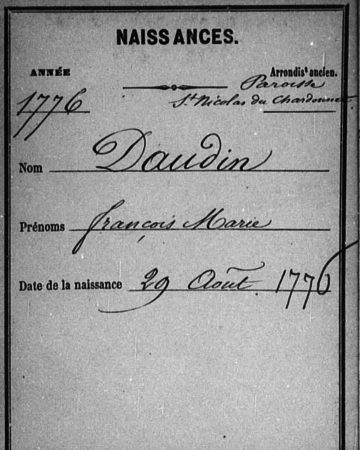 NAISSANCES.
ANNÉE
Arrondist ancien.
1776
Paroisse
St Nicolas du Chardonnet
Nom Daudin
Prénoms François Marie
Date de la naissance 29 Août 1776